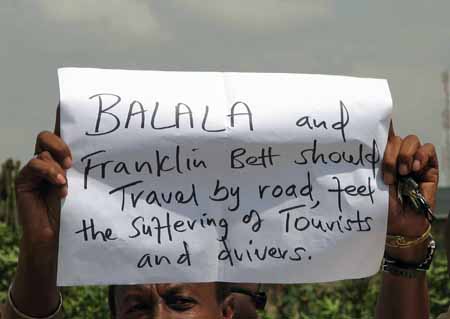 BALALA and
Franklin Bett should
Travel by road, feel
the suffering of Tourists
and drivers.